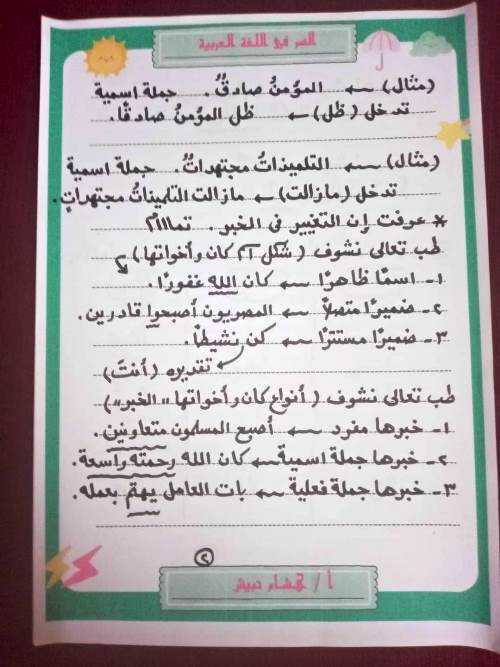 السر في اللغة العربية
(مثال) ← المؤمنُ صادقٌ. جملة اسمية
تدخل (ظل) ← ظل المؤمنُ صادقًا.
(مثال) ← التلميذاتُ مجتهداتٌ. جملة اسمية
تدخل (مازالت) ← مازالت التلميذاتُ مجتهداتٍ.
* عرفت إن التغيير فى الخبر. تماااام
طب تعالى نشوف (شكل اسم كان وأخواتها)
١- اسمًا ظاهرًا ← كان الله غفورًا.
٢- ضميرًا متصلاً ← المصريون أصبحوا قادرين.
٣- ضميرًا مستترًا ← كن نشيطًا.
تقديره (أنتَ)
طب تعالى نشوف (أنواع كان وأخواتها "الخبر")
١- خبرها مفرد ← أصبح المسلمون متعاونين.
٢- خبرها جملة اسمية ← كان الله رحمته واسعة.
٣- خبرها جملة فعلية ← بات العامل يهتم بعمله.
٢
أ / هشام حبيش